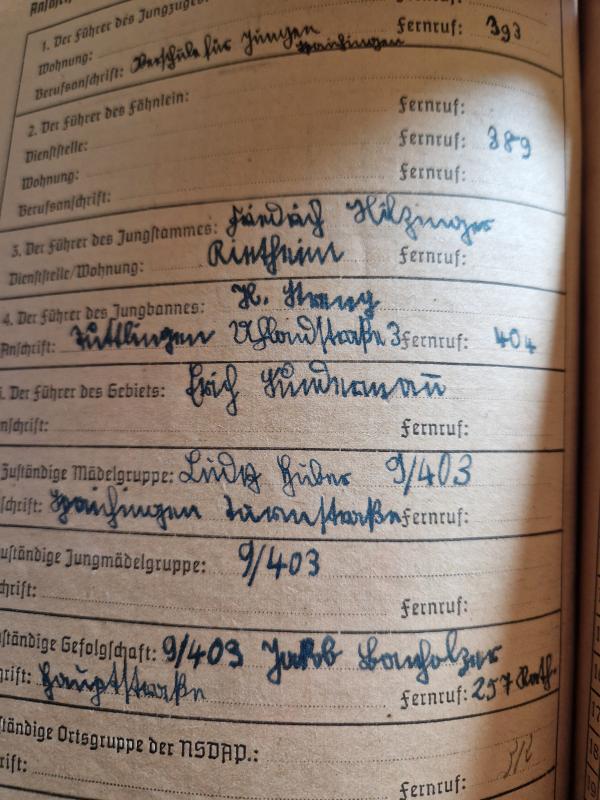 1. Der Führer des Jungzuges
Wohnung: Fernruf: 393
Berufsanschrift: für Jungen
2. Der Führer des Fähnlein: Fernruf:
Dienststelle: Fernruf: 389
Wohnung: Fernruf:
Berufsanschrift:
3. Der Führer des Jungstammes: Friedrich Hilzinger
Dienststelle/Wohnung: Rietheim Fernruf:
4. Der Führer des Jungbannes: H.
Anschrift: Tuttlingen Uhlandstraße 3 Fernruf: 404
. Der Führer des Gebiets: Erich Sundermann
nschrift: Fernruf:
Zuständige Mädelgruppe: Huber 9/403
schrift: Spaichingen Turnstraße Fernruf:
uständige Jungmädelgruppe: 9/403
chrift: Fernruf:
uständige Gefolgschaft: 9/403 Jakob Bauholzer
rift: Hauptstraße Fernruf: 257 Rath.
tändige Ortsgruppe der NSDAP.:
rift: Fernruf: